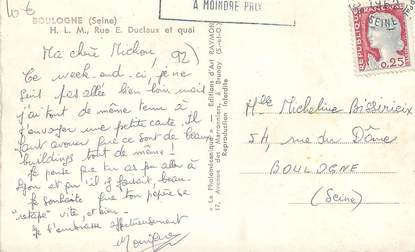 10 €
BOULOGNE (Seine)
H. L. M., Rue E. Duclaux et quai
A MOINDRE PRIX
SEINE
REPUBLIQUE FRANÇAISE
0,25
Ma chère Michou 92)
Ce week-end-ci, je ne
suis pas allée bien loin mais
j'ai tout de même tenu à
t'envoyer une petite carte. Il
faut avouer que ce sont de beaux
buildings tout de même !
Je pense que tu as pu aller à
et qu'il y faisait beau.
Je souhaite que ton pépère se
"retape" vite, et bien -
Je t'embrasse affectueusement
Monique
« La Photomécanique » - Editions d'Art RAYMON
17, Avenue des Marronniers, à Brunoy (S.-et-O.)
Reproduction interdite
Mlle Micheline
54, rue du Dôme
BOULOGNE
(Seine)